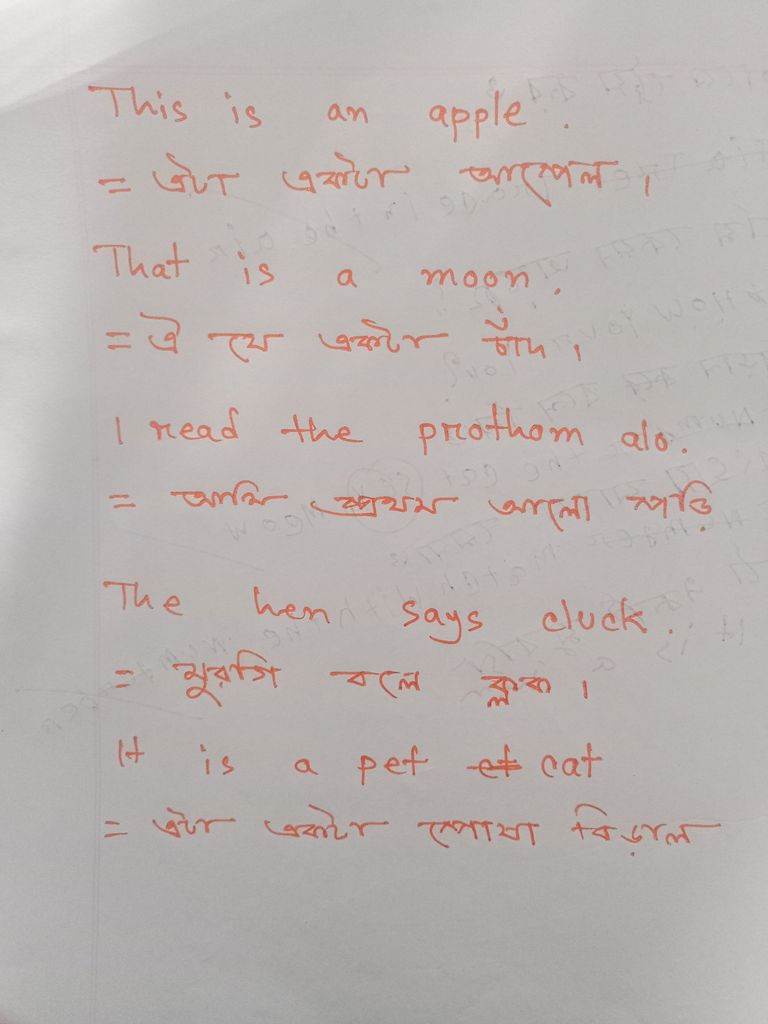 This is an apple.
= এটা একটা আপেল।
That is a moon.
= ঐ যে একটা চাঁদ।
I read the prothom alo.
= আমি প্রথম আলো পড়ি
The hen says cluck.
= মুরগি বলে ক্লাক।
It is a pet cat
= এটা একটা পোষা বিড়াল